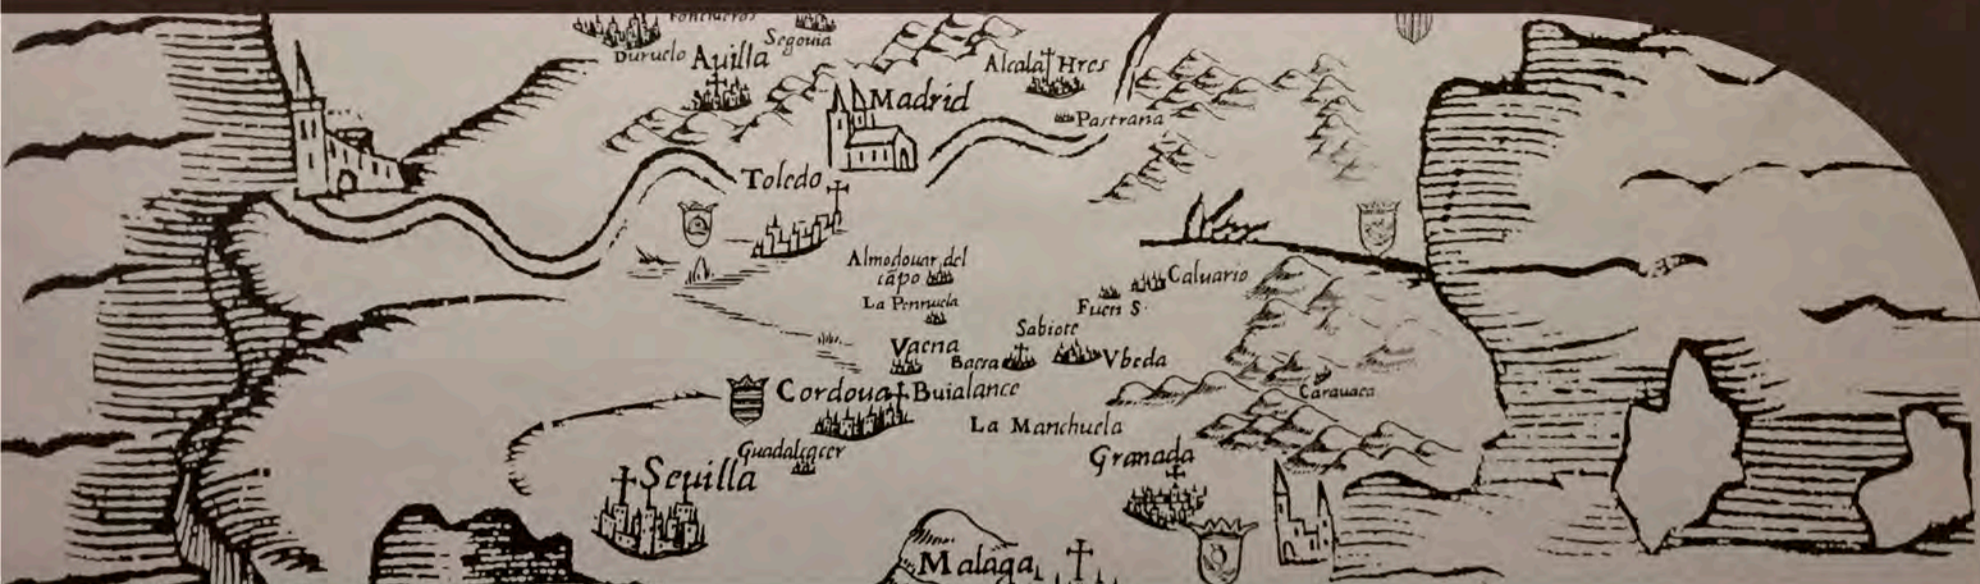 Duruelo
Segouia
Auilla
Alcala Hres
Madrid
Pastrana
Toledo
Almodouar del
cãpo
La Pennuela
Caluario
Fuen S.
Sabiote
Vaena
Baesa
Vbeda
Carauaca
Cordoua
Buialance
La Manchuela
Guadalcacer
Granada
Seuilla
Malaga